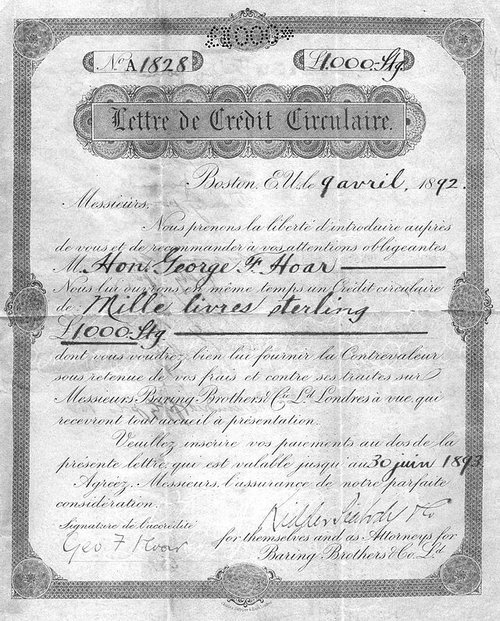 £1000
No A1828
£1000-Stg.
Lettre de Crédit Circulaire.
Boston, E.U. le 9 avril, 1892.
Messieurs,
Nous prenons la liberté d'introduire auprès
de vous et de recommander à vos attentions obligeantes
M. Hon. George F. Hoar
Nous lui ouvrons en même temps un Crédit circulaire
de Mille livres sterling
£1000-Stg.
dont vous voudrez bien lui fournir la Contrevaleur
sous retenue de vos frais et contre ses traites sur
Messieurs Baring Brothers & Cie. Ld. Londres à vue, qui
recevront tout accueil à présentation.
Veuillez inscrire vos paiements au dos de la
présente lettre, qui est valable jusqu'au 30 juin 1893
Agréez, Messieurs, l'assurance de notre parfaite
considération.
Signature de l'accrédité
Geo F Hoar
Kidder Peabody & Co
for themselves and as Attorneys for
Baring Brothers & Co. Ld.